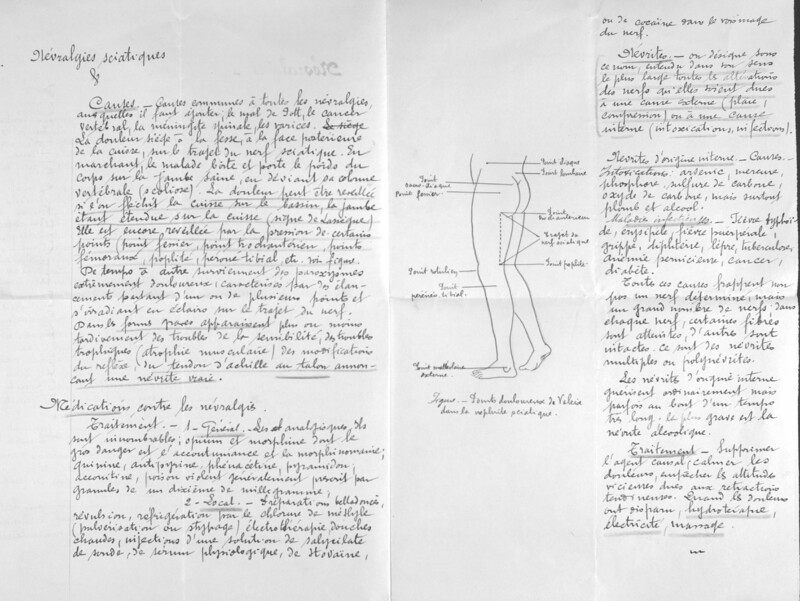 Névralgies sciatiques
Causes. - Causes communes à toutes les névralgies,
auxquelles il faut ajouter; le mal de Pott, le cancer
vertébral, la méningite spinale, les varices. Le siège
La douleur siège à la fesse, à la face postérieure
de la cuisse, sur le trajet du nerf sciatique. En
marchant, le malade boite et porte le poids du
corps sur la jambe saine, en déviant sa colonne
vertébrale (scoliose). La douleur peut être réveillée
si l'on fléchit la cuisse sur le bassin, la jambe
étant étendue sur la cuisse (signe de Lasègue)
Elle est encore réveillée par la pression de certains
points (point fessier, point trochantérien, points
fémoraux, poplité, péroné tibial, etc. voir figure.
De temps à autre surviennent des paroxysmes
extrêmement douloureux, caractérisés par des élan-
cements partant d'un ou de plusieurs points et
s'irradiant en éclairs sur le trajet du nerf.
Dans les formes graves apparaissent plus ou moins
tardivement des troubles de la sensibilité, des troubles
trophiques (atrophie musculaire) des modifications
du réflexe, du tendon d'achille au talon annon-
cant une névrite vraie.
Médications contre les névralgies.
Traitement. - 1 - Général. - Les analgésiques, ils
sont innombrables; opium et morphine dont le
gros danger est l'accoutumance et la morphinomanie;
quinine, antipyrine, phénacétine, pyramidon;
acconitine, poison violent généralement prescrit par
granules de un dixième de milligramme,
2 - Local. - Préparations belladonées,
révulsion, réfrigération par le chlorure de méthyle
(pulvérisation ou stypage) électrothérapie, douches
chaudes, injections d'une solution de salycilate
de soude, de sérum physiologique, de stovaïne,
Point iliaque
Point lombaire
Point
sacro-iliaque
Point fessier
Point
trochantérien
Trajet du
nerf sciatique
Point poplité
Point rotulien
Point
péronéo-tibial.
Point malléolaire
externe.
Figure. - Points douloureux de Valeix
dans la
sciatique.
ou de cocaïne dans le voisinage
du nerf.
Névrites. - on désigne sous
ce nom, entendu dans son sens
le plus large toutes les altérations
des nerfs qu'elles soient dues
à une cause externe (plaie,
compression) ou à une cause
interne (intoxications, infections).
Névrite d'origine interne. - Causes. -
Intoxications: arsenic, mercure,
phosphore, sulfure de carbone,
oxyde de carbone, mais surtout
plomb et alcool.
Maladies infectieuses. - Fièvre typhoï-
de, erysipèle, fièvre puerpérale,
grippe, diphtérie, lèpre, tuberculose,
anémie pernicieuse, cancer,
diabète.
Toutes ces causes frappent non
pas un nerf déterminé, mais
un grand nombre de nerfs dans
chaque nerf, certaines fibres
sont atteintes, d'autres sont
intactes. ce sont des névrites
multiples ou polynévrites.
Les névrites d'origine interne
guérissent ordinairement mais
parfois au bout d'un temps
très long. la plus grave est la
névrite alcoolique.
Traitement - Supprimer
l'agent causal, calmer les
douleurs, empêcher les attitudes
vicieuses dues aux rétractions
tendineuses. Quand les douleurs
ont disparu, hydrotérapie,
électricité, massage.